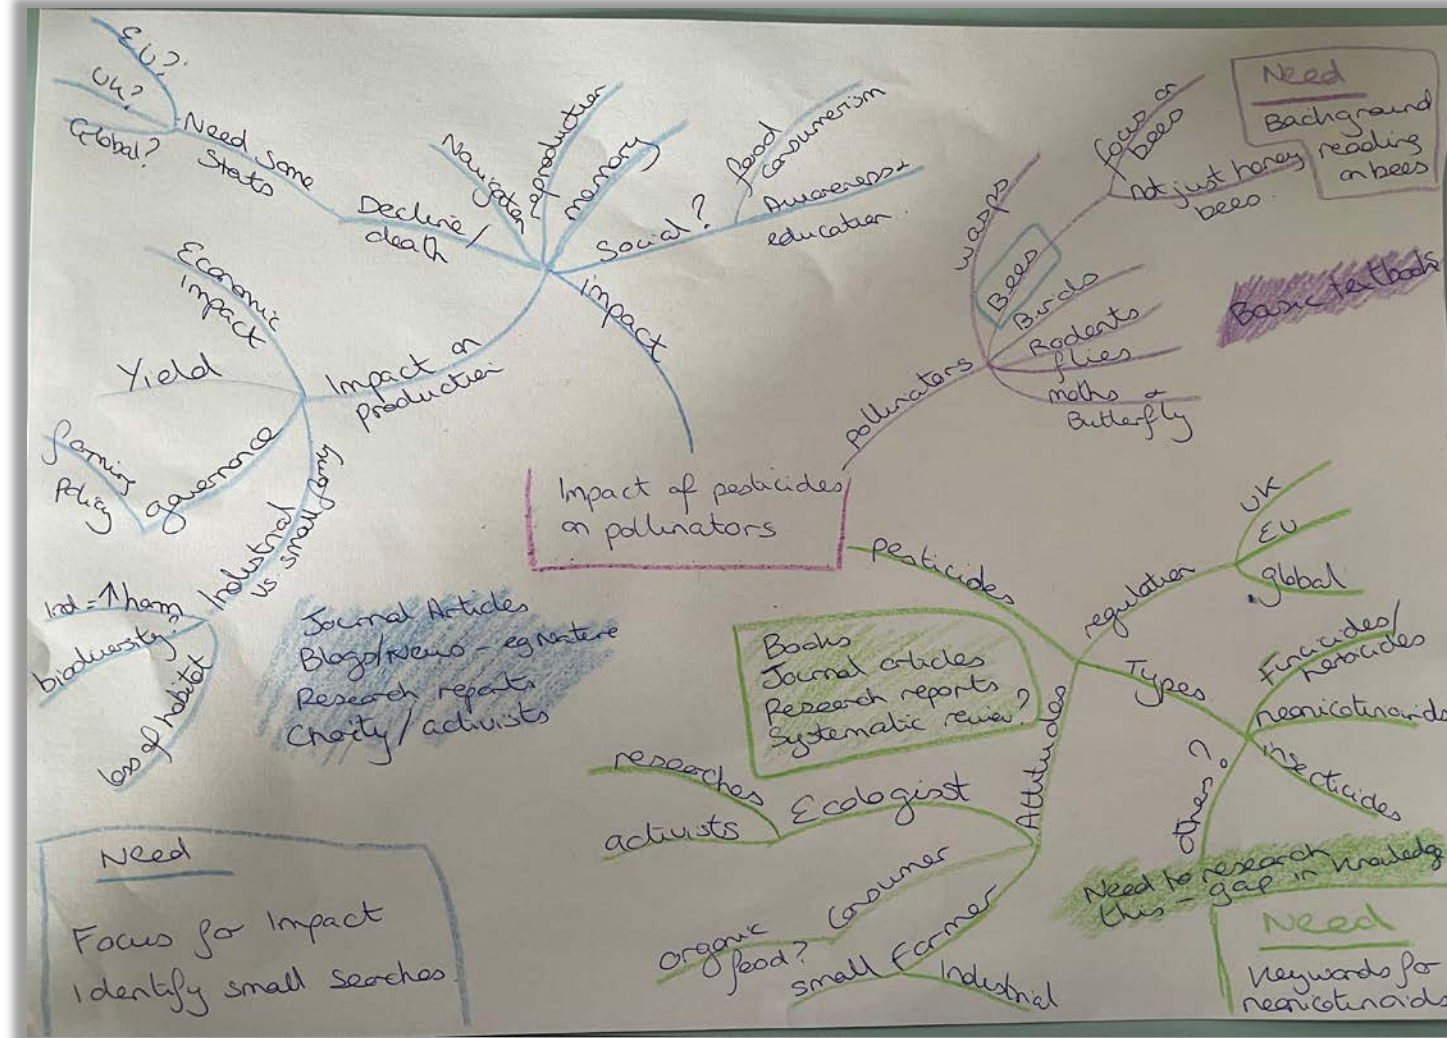 Impact of pesticides
on pollinators
impact
Decline/
death
Need some
Stats
EU?
UK?
Global?
Navigation
reproduction
memory
Social?
food
consumerism
Awareness +
education.
Impact on
production
Economic
impact
Yield
governance
farming
Policy
Industrial
vs. small farms
Ind = ↑ harm
biodiversity?
loss of habitat
Journal Articles
Blogs/News - eg nature
Research reports
Charity / activists
Need
Focus for Impact
Identify small searches
pollinators
wasps
Bees
focus on
bees
not just honey
bees.
Birds
Rodents
flies
moths +
Butterfly
Need
Background
reading
on bees
Basic textbooks
Pesticides
regulation
UK
EU
global
Types
Funicides/
herbicides
neonicotinoids
insecticides
others?
Need to research
this - gap in knowledge
Need
Keywords for
neonicotinoids
Attitudes
Ecologist
researches
activists
Consumer
organic
food?
Farmer
small
Industrial
Books
Journal articles
Research reports
Systematic review?